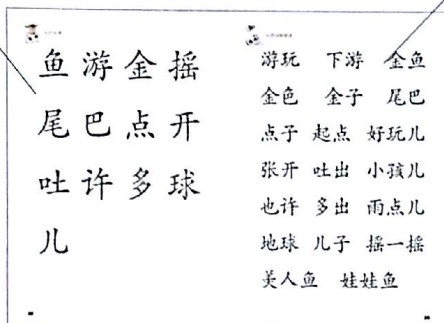 鱼 游 金 摇
尾 巴 点 开
吐 许 多 球
儿
游玩 下游 金鱼
金色 金子 尾巴
点子 起点 好玩儿
张开 吐出 小孩儿
也许 多出 雨点儿
地球 儿子 摇一摇
美人鱼 娃娃鱼